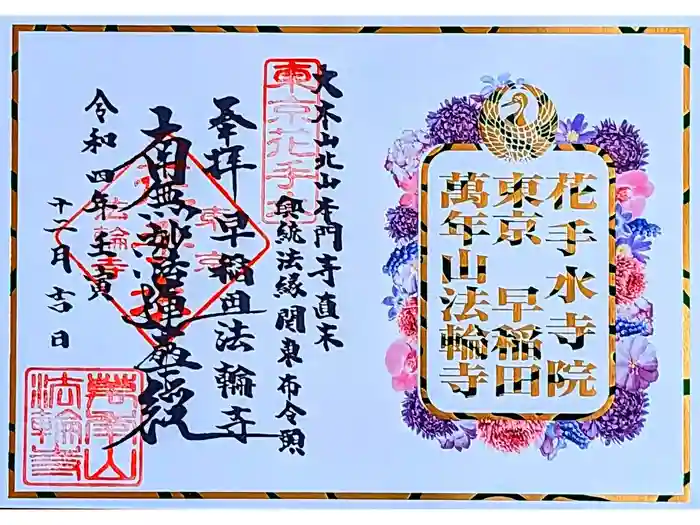 花手水寺院
東京 早稲田
萬年山法輪寺
大本山北山本門寺直末
興統法縁関東布令頭
東京花手水
奉拝 早稲田法輪寺
南無妙法蓮華経
令和四年壬寅
十二月吉日
東京
法輪寺
萬年山
法輪寺